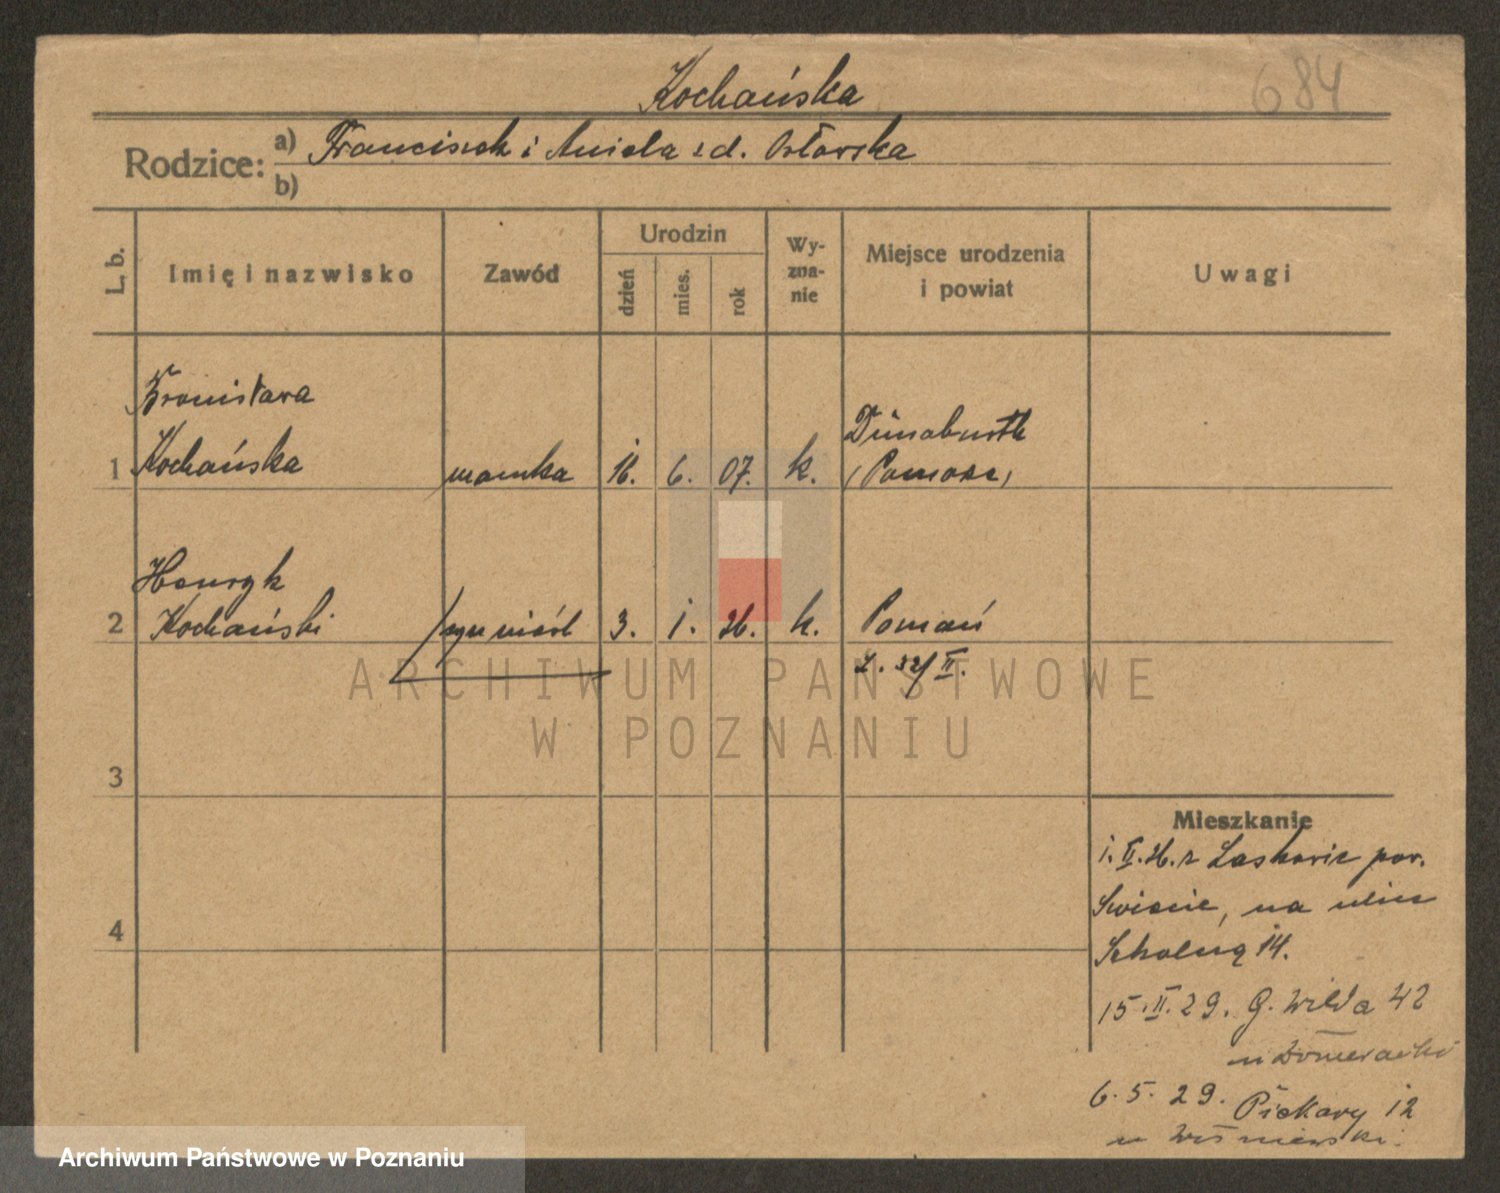 Kochańska
684
Rodzice: a) Franciszek i Aniela zd. Orłowska
b)
L. b.
Imię i nazwisko
Zawód
Urodzin
dzień
mies.
rok
Wy-
zna-
nie
Miejsce urodzenia
i powiat
Uwagi
Bronisława
1 Kochańska mamka 16. 6. 07. k.
(Pomorze)
Henryk
2 Kochański syn nieśl 3. 1. 26. k. Poznań
L. 32/II.
3
4
Mieszkanie
1. II. 26. z Laskowic pow.
Swiecie, na ulicę
Szkolną 14.
15. II. 29. G. Wilda 42
u Domeracki
6. 5. 29. Piekary 12
u Wiśniewski.
ARCHIWUM PAŃSTWOWE
W POZNANIU
Archiwum Państwowe w Poznaniu